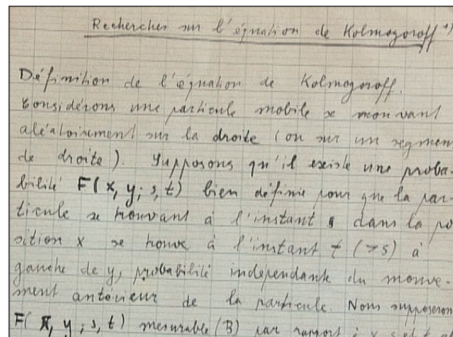 Recherches sur l'équation de Kolmogoroff 1)
Définition de l'équation de Kolmogoroff.
Considérons une particule mobile se mouvant
aléatoirement sur la droite (ou sur un segmen
de droite). Supposons qu'il existe une proba-
bilité F(x, y; s, t) bien définie pour que la par-
ticule se trouvant à l'instant s dans la po
sition x se trouve à l'instant t (>s) à
gauche de y, probabilité indépendante du mouve-
ment antérieur de la particule. Nous supposerons
F(x, y; s, t) mesurable (B) par rapport à x, s et t et